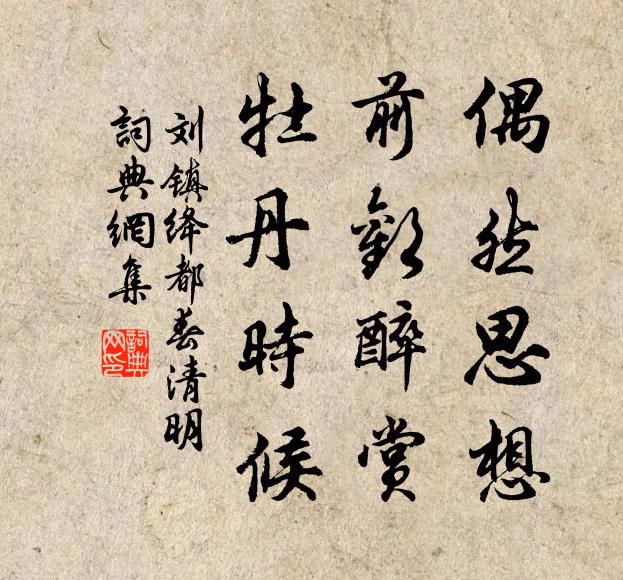 偶然思想
前歡醉賞
牡丹時候
刘镇绛都春清明
詞典網集
詞典
网印